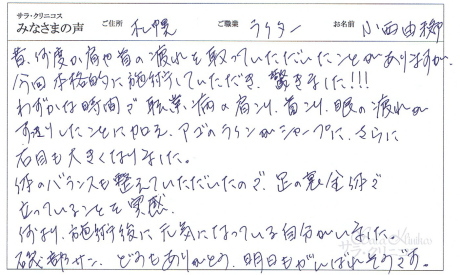 サラ・クリニコス
みなさまの声 ご住所 札幌 ご職業 ライター お名前 小西由稀
昔、何度か肩や首の疲れを取っていただいたことがありますが、
今回本格的に施術していただき、驚きました!!!
わずかな時間で職業病の肩こり、首こり、眼の疲れが
すっきりしたことに加え、アゴのラインがシャープに、さらに
右目も大きくなりました。
体のバランスも整えていただいたので、足の裏全体で
立っていることを実感。
何より、施術後に元気になっている自分がいました。
サン、どうもありがとう、明日もがんばれそうです。